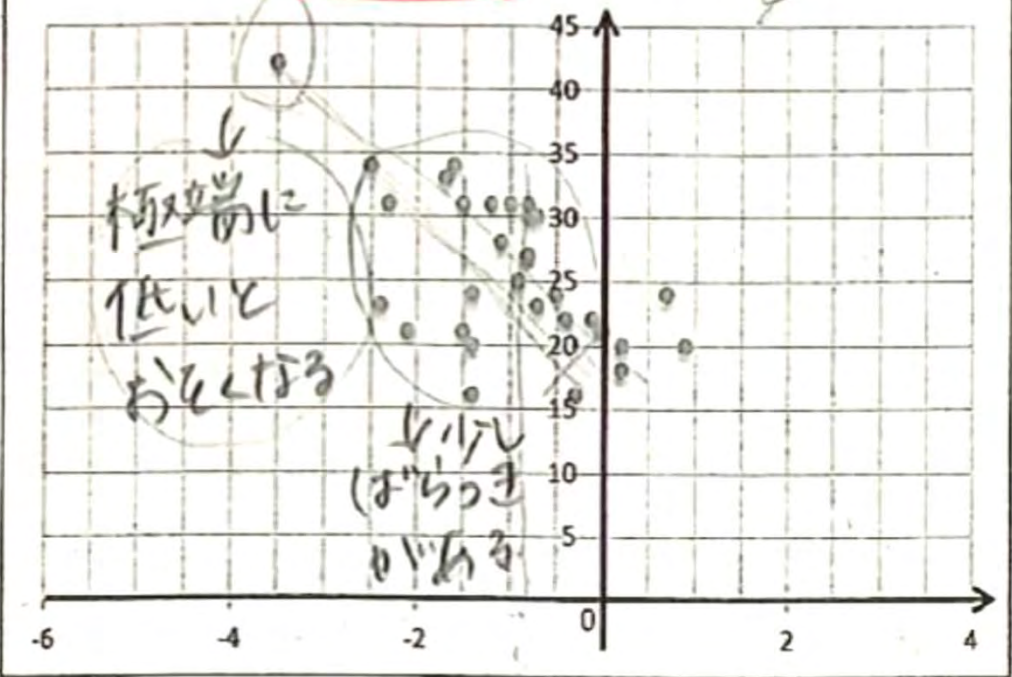 45
40
35
30
25
20
15
10
5
0
-6
-4
-2
2
4
↓
極端に
低いと
おそくなる
↓少し
ばらつき
がある